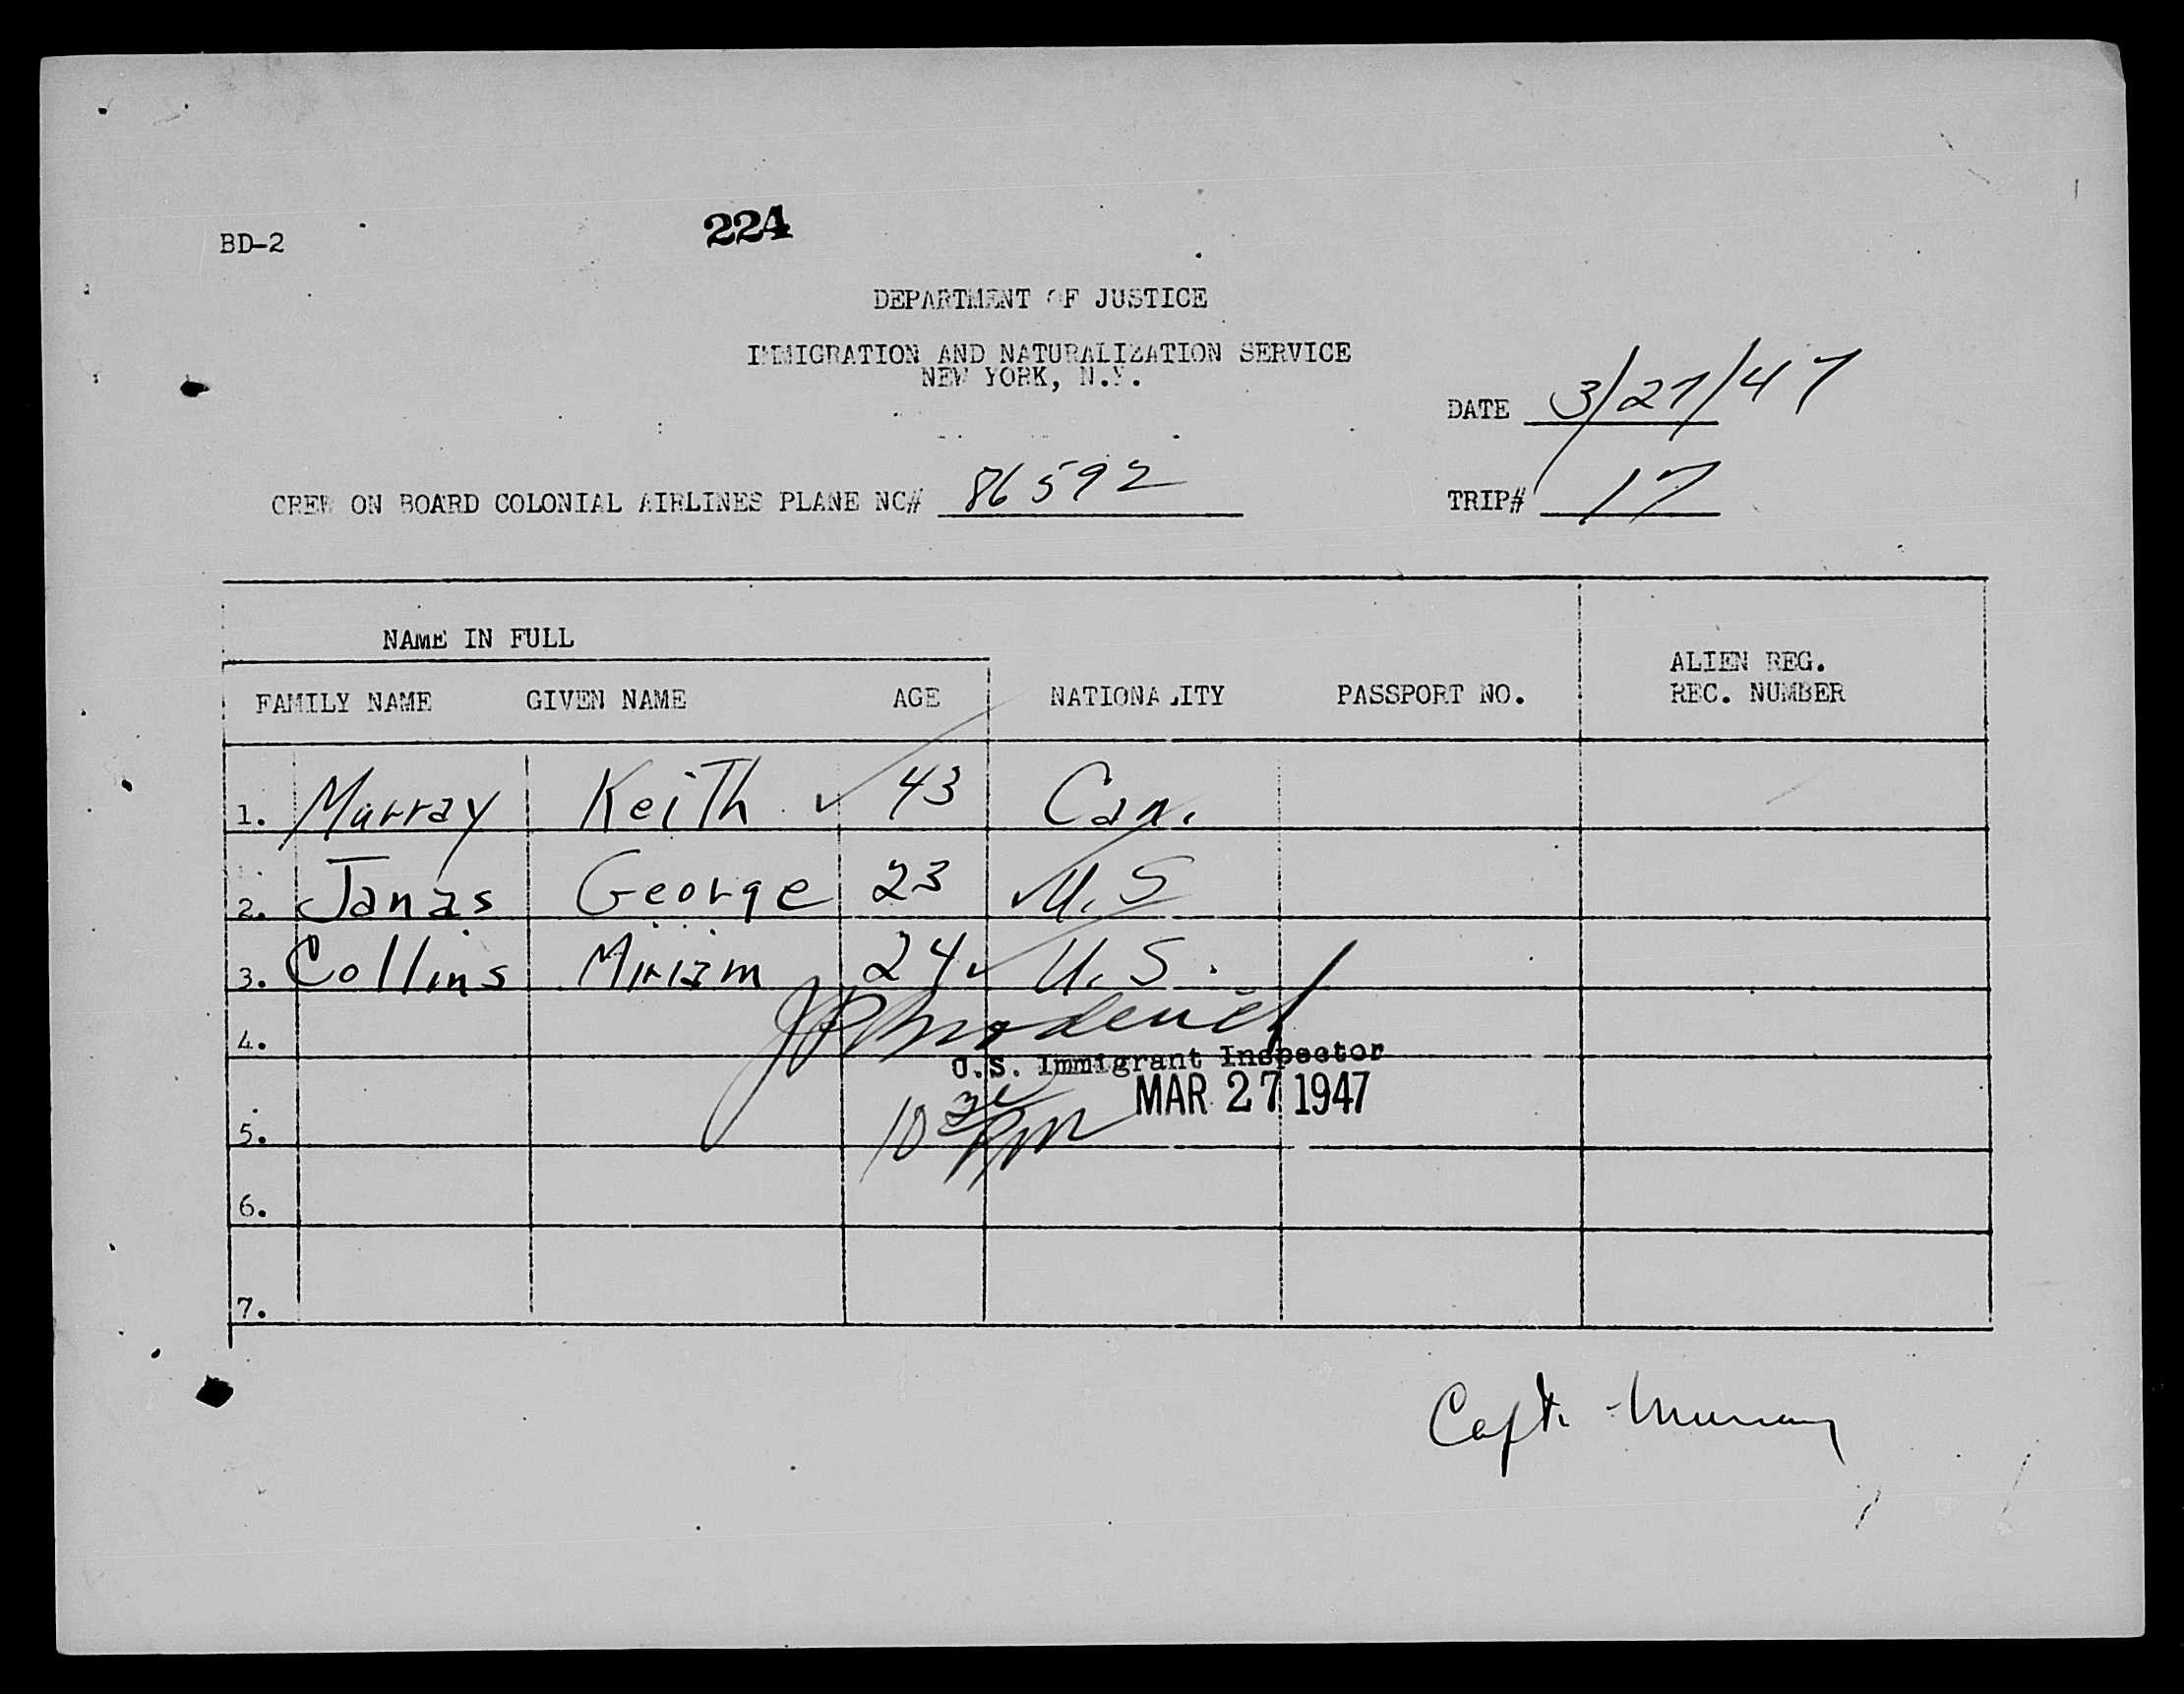 BD-2
224
DEPARTMENT OF JUSTICE
IMMIGRATION AND NATURALIZATION SERVICE
NEW YORK, N.Y.
DATE 3/27/47
CREW ON BOARD COLONIAL AIRLINES PLANE NC# 86592
TRIP# 17
NAME IN FULL
FAMILY NAME GIVEN NAME AGE NATIONALITY PASSPORT NO. ALIEN REG. REC. NUMBER
1. Murray Keith 43 Can.
2. Janas George 23 U.S
3. Collins Miriam 24 U.S.
4.
U.S. Immigrant Inspector
MAR 27 1947
5. 10 PM
6.
7.
Capt. Murray